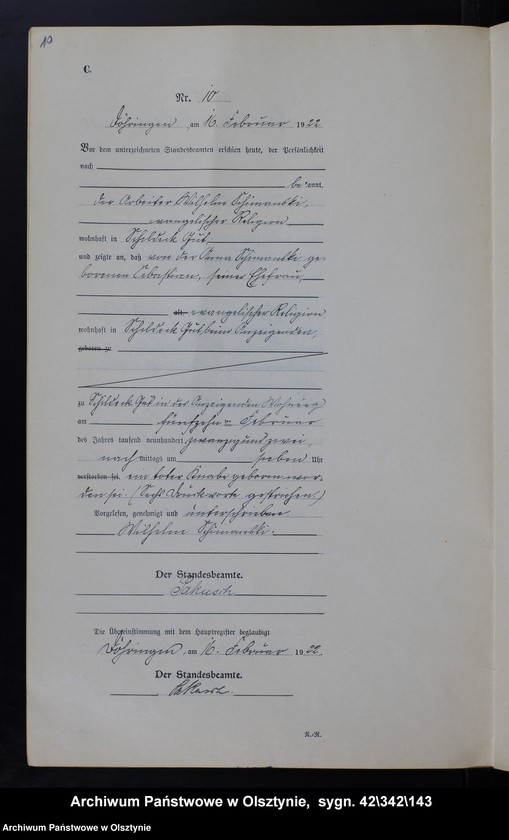 10
C.
Nr. 10
Döhringen, am 16. Februar 1922
Vor dem unterzeichneten Standesbeamten erschien heute, der Persönlichkeit
nach
bekannt,
der Arbeiter Wilhelm Schimanski,
evangelischer Religion
wohnhaft in Schildeck Gut
und zeigte an, daß von der Anna Schimanski ge-
borenen Sebastian, seiner Ehefrau,
alt, evangelischer Religion,
wohnhaft in Schildeck Gut, beim Anzeigenden,
geboren zu
zu Schildeck Gut in des Anzeigenden Wohnung
am fünfzehnten Februar
des Jahres tausend neunhundert zwanzig und zwei,
nachmittags um sieben Uhr
verstorben sei. ein toter Knabe geboren wor-
den sei. (Sechs Druckworte gestrichen.)
Vorgelesen, genehmigt und unterschrieben
Wilhelm Schimanski.
Der Standesbeamte.
Die Übereinstimmung mit dem Hauptregister beglaubigt
Döhringen, am 16. Februar 1922.
Der Standesbeamte.
R.-R.
Archiwum Państwowe w Olsztynie, sygn. 42\342\143
Archiwum Państwowe w Olsztynie